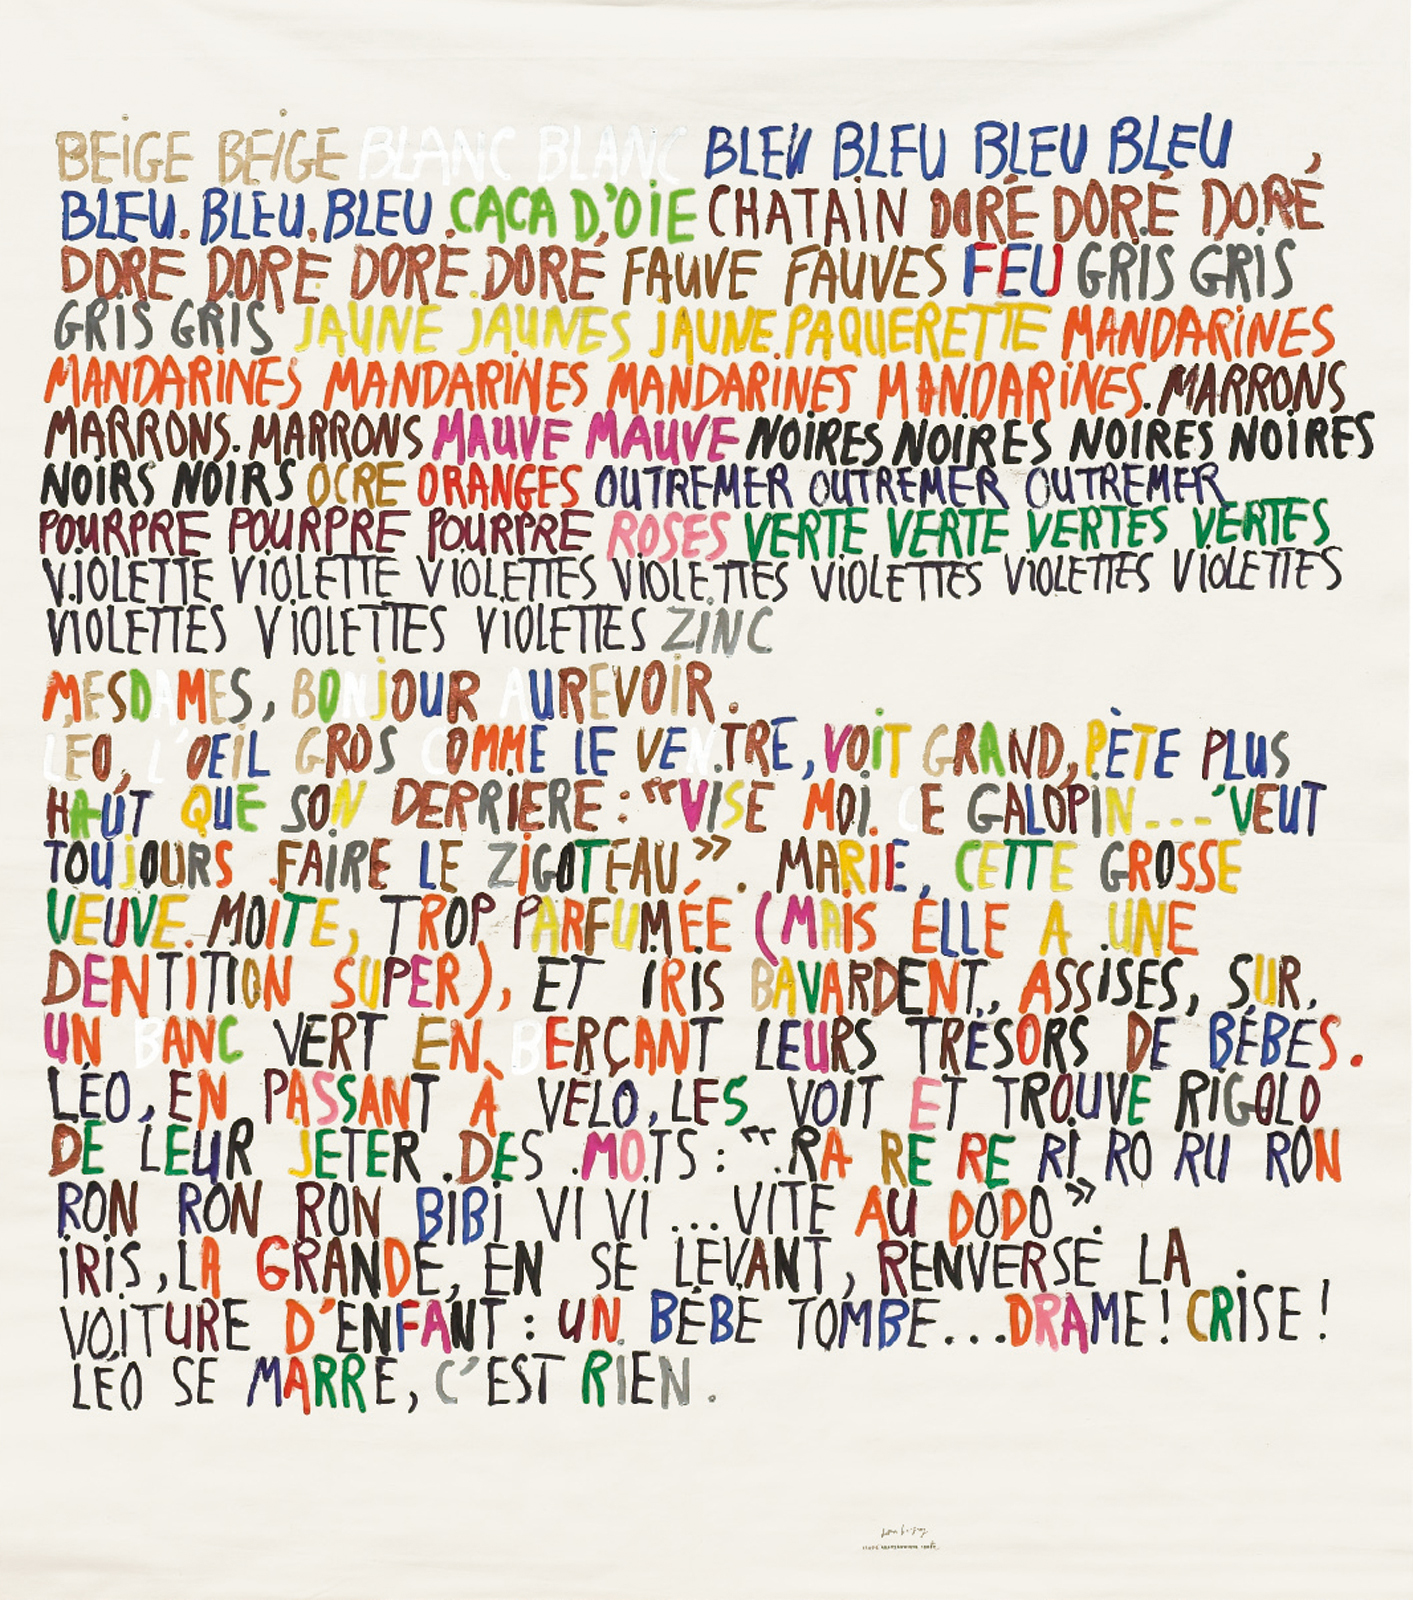 BEIGE BEIGE BLANC BLANC BLEU BLEU BLEU BLEU
BLEU. BLEU. BLEU CACA D'OIE CHATAIN DORÉ DORÉ DORÉ
DORÉ DORÉ DORÉ DORÉ FAUVE FAUVES FEU GRIS GRIS
GRIS GRIS JAUNE JAUNES JAUNE PAQUERETTE MANDARINES
MANDARINES MANDARINES MANDARINES MANDARINES. MARRONS
MARRONS. MARRONS MAUVE MAUVE NOIRES NOIRES NOIRES NOIRES
NOIRS NOIRS OCRE ORANGES OUTREMER OUTREMER OUTREMER
POURPRE POURPRE POURPRE ROSES VERTE VERTE VERTES VERTES
VIOLETTE VIOLETTE VIOLETTES VIOLETTES VIOLETTES VIOLETTES VIOLETTES
VIOLETTES VIOLETTES VIOLETTES ZINC
MESDAMES, BONJOUR AUREVOIR.
LEO, L'OEIL GROS COMME LE VENTRE, VOIT GRAND, PÈTE PLUS
HAUT QUE SON DERRIÈRE : "VISE MOI CE GALOPIN... 'VEUT
TOUJOURS FAIRE LE ZIGOTEAU". MARIE, CETTE GROSSE
VEUVE MOITE, TROP PARFUMÉE (MAIS ELLE A UNE
DENTITION SUPER), ET IRIS BAVARDENT, ASSISES, SUR
UN BANC VERT EN BERÇANT LEURS TRÉSORS DE BÉBÉS.
LÉO, EN PASSANT À VÉLO, LES VOIT ET TROUVE RIGOLO
DE LEUR JETER DES MOTS : "RA RE RE RI RO RU RON
RON RON RON BIBI VI VI ... VITE AU DODO".
IRIS, LA GRANDE, EN SE LEVANT, RENVERSE LA
VOITURE D'ENFANT : UN BÉBÉ TOMBE...DRAME! CRISE!
LÉO SE MARRE, C'EST RIEN.